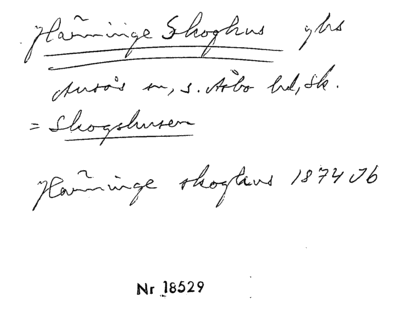 Härninge Skoghus ghs
Ausås sn, s. Åsbo hd, Sk.
= Skogshusen
Härninge skoghus 1874 Jb
Nr 18529